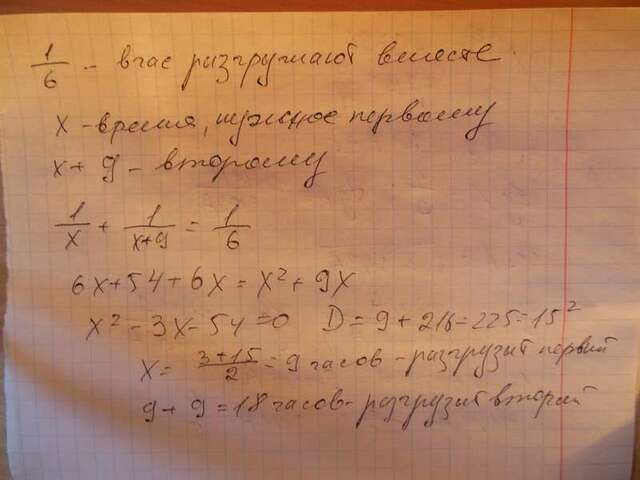 1/6 - в час разгружают вместе.
x - время, нужное первому
x + 9 - второму
1/x + 1/x+9 = 1/6
6x+54+6x = x² + 9x
x² - 3x - 54 = 0 D = 9 + 216 = 225 = 15²
x = 3+15/2 = 9 часов - разгрузит первый
9 + 9 = 18 часов - разгрузит второй